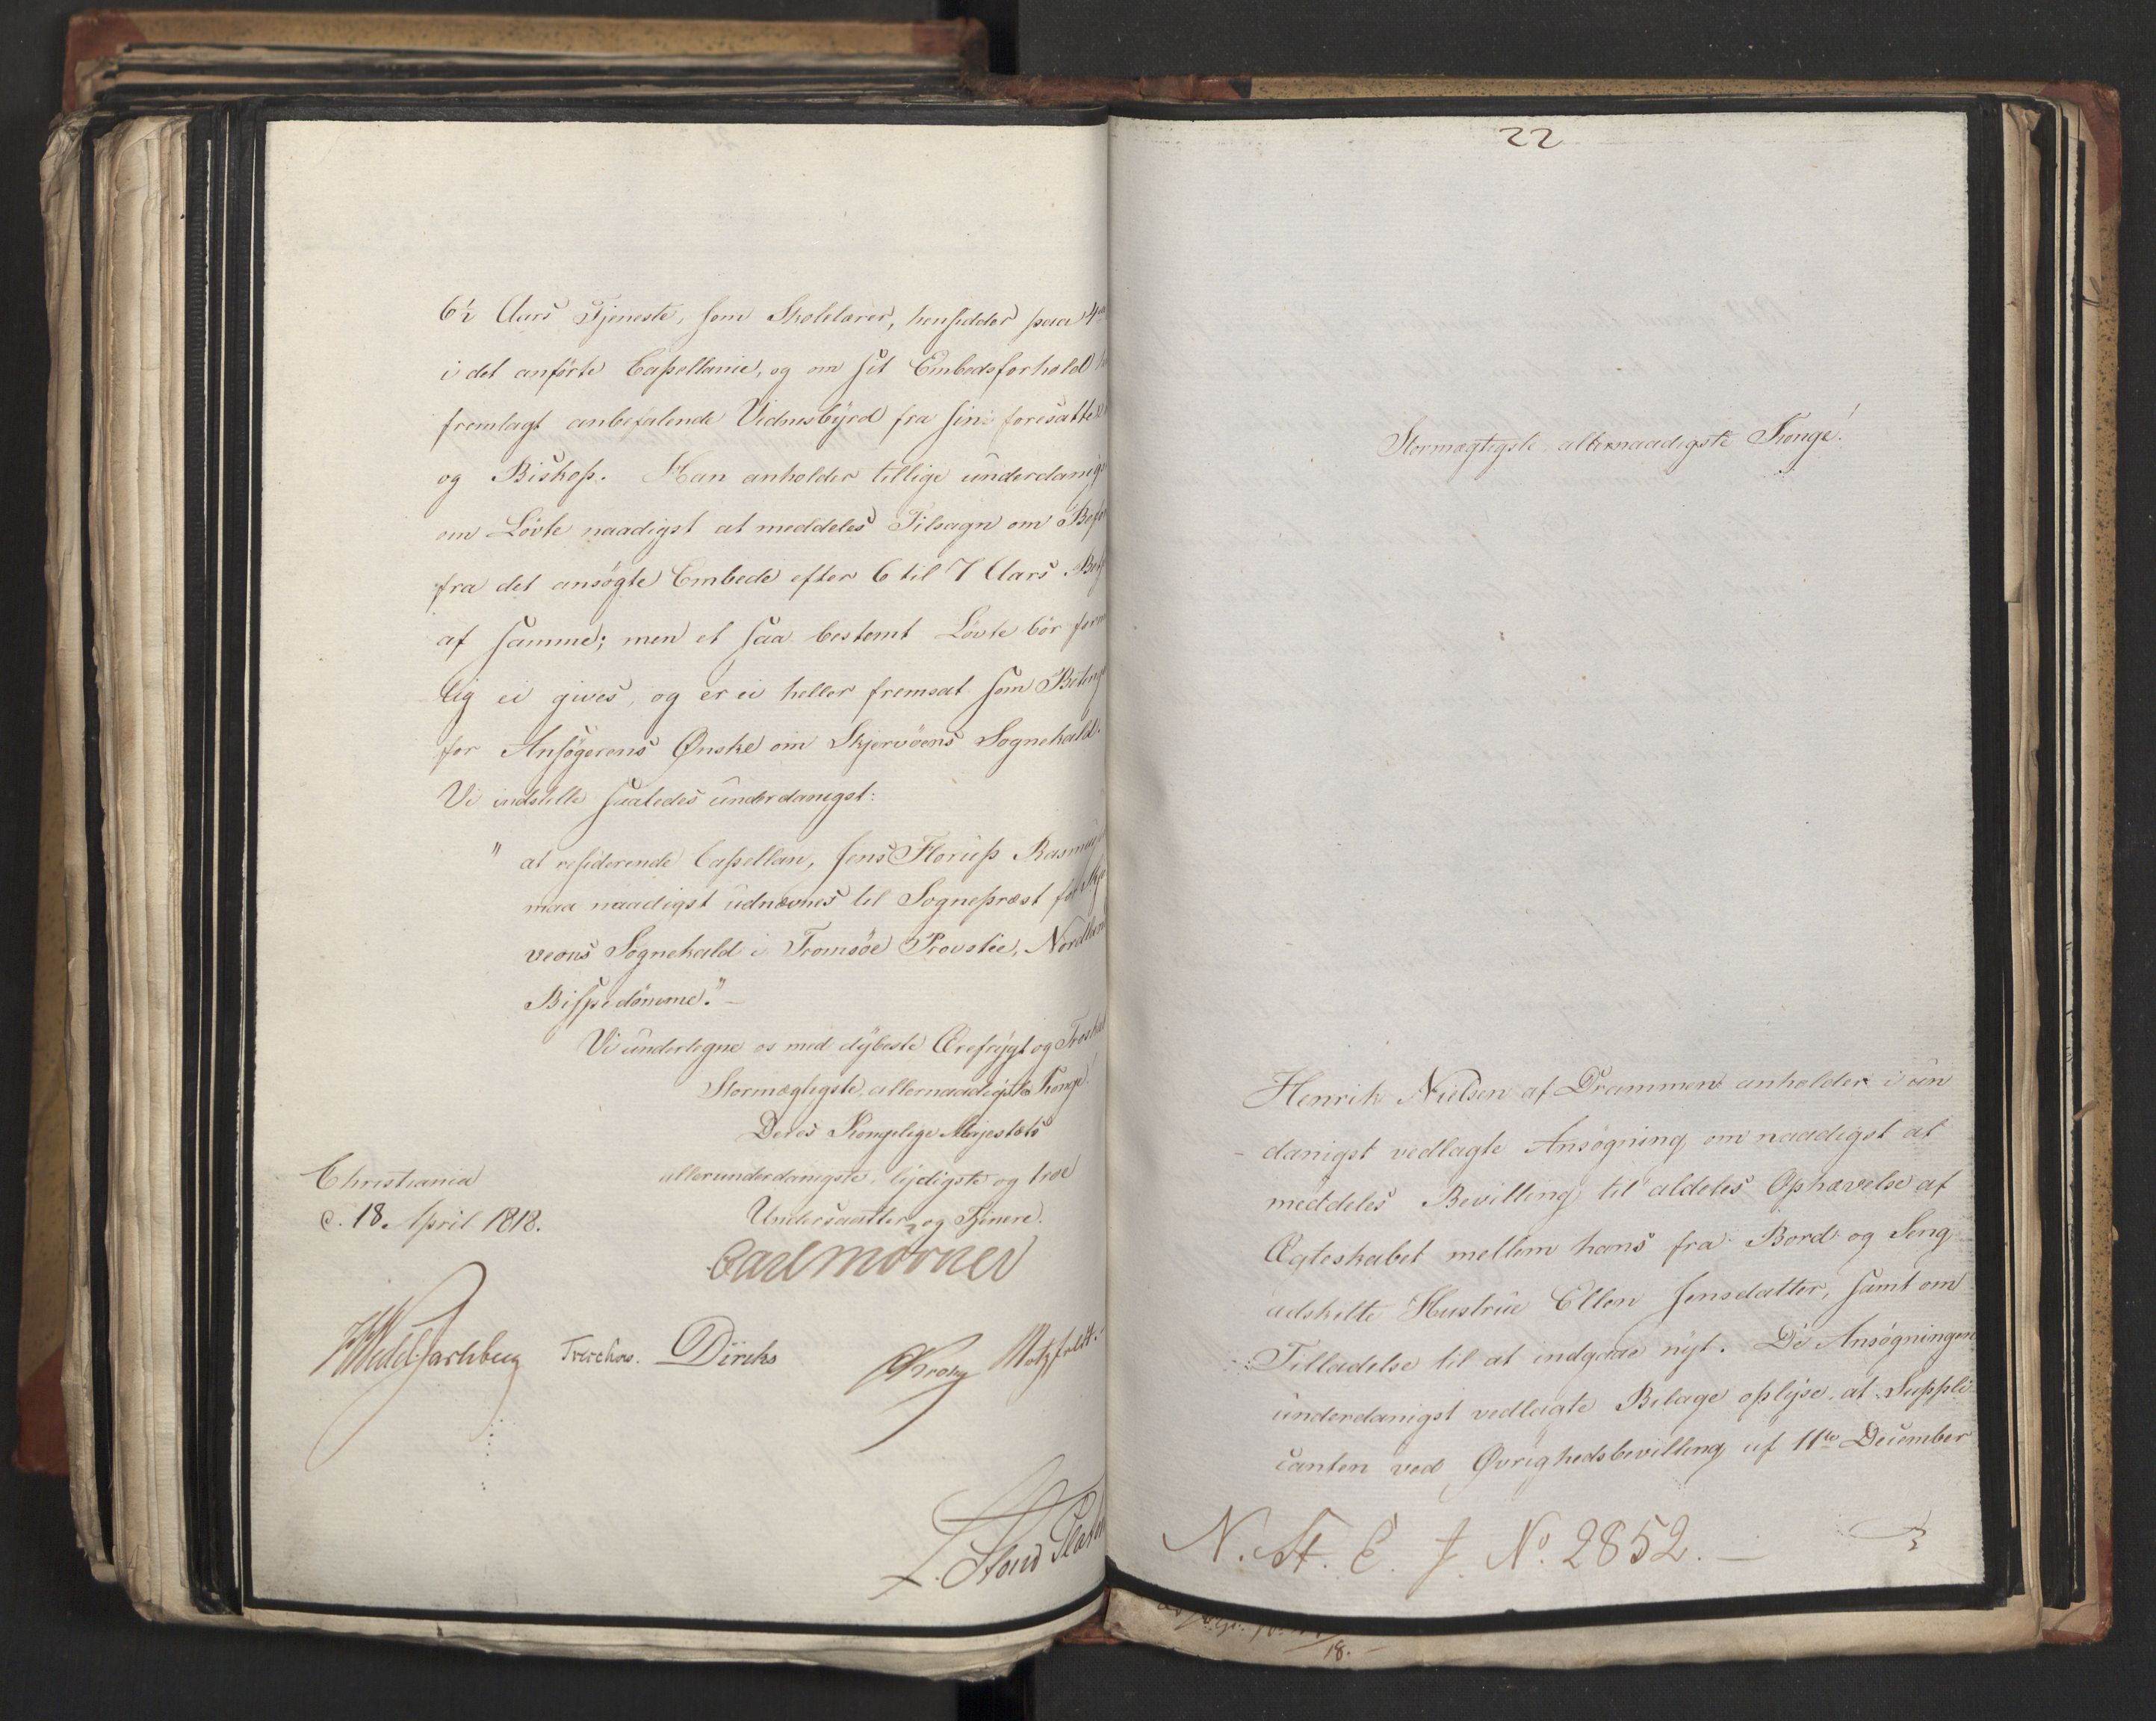 6½ Aars Tjeneste, som Skolelærer, hensidder paa 4de
i det anførte Capellanie, og om sit Embedsforhold
fremlagt anbefalende Vidnesbyrd fra sin foresatte
og Biskop. Han anholder tillige underdanigst
om Løvte naadigst at meddeles Tilsagn om Befor
fra det ansøgte Embede efter 6 til 7 Aars
af samme; men et saa bestemt Løvte bør
lig ei gives, og er ei heller fremsat som Beting
for Ansøgerens Ønske om Skjervöens Sognekald.
Vi indstille saaledes underdanigst:
" at residerende Capellan, Jens Floriis Rasmus
maa naadigst udnævnes til Sognepræst for Skjer
vöens Sognekald i Tromsöe Provstie, Nordland
Bispedömme." –
Vi undertegne os med dybeste Ærefrygt og Troskab
Stormægtigste, allernaadigste Konge!
Deres Kongelige Majestæts
Christiania
allerunderdanigste, lydigste og troe
d. 18. April 1818.
Undersaatter og Tjenere.
Carl Mörner
HWedel Jarlsberg Treschow. Diriks Krog Motzfeldt.
22
Stormægtigste, allernaadigste Konge!
Henrik Nielsen af Drammen anholder i un
danigst vedlagte Ansøgning, om naadigst at
meddeles Bevilling til aldeles Ophævelse af
Ægteskabet mellem hans fra Bord og Seng
adskilte Hustrue Ellen Jensdatter, samt om
Tilladelse til at indgaae nyt. De Ansøgningen
underdanigst vedlagte Bilage oplyse, at Suppli
canten ved Øvrighedsbevilling af 11te December
N. St. E. J. No. 2852. –
18. –